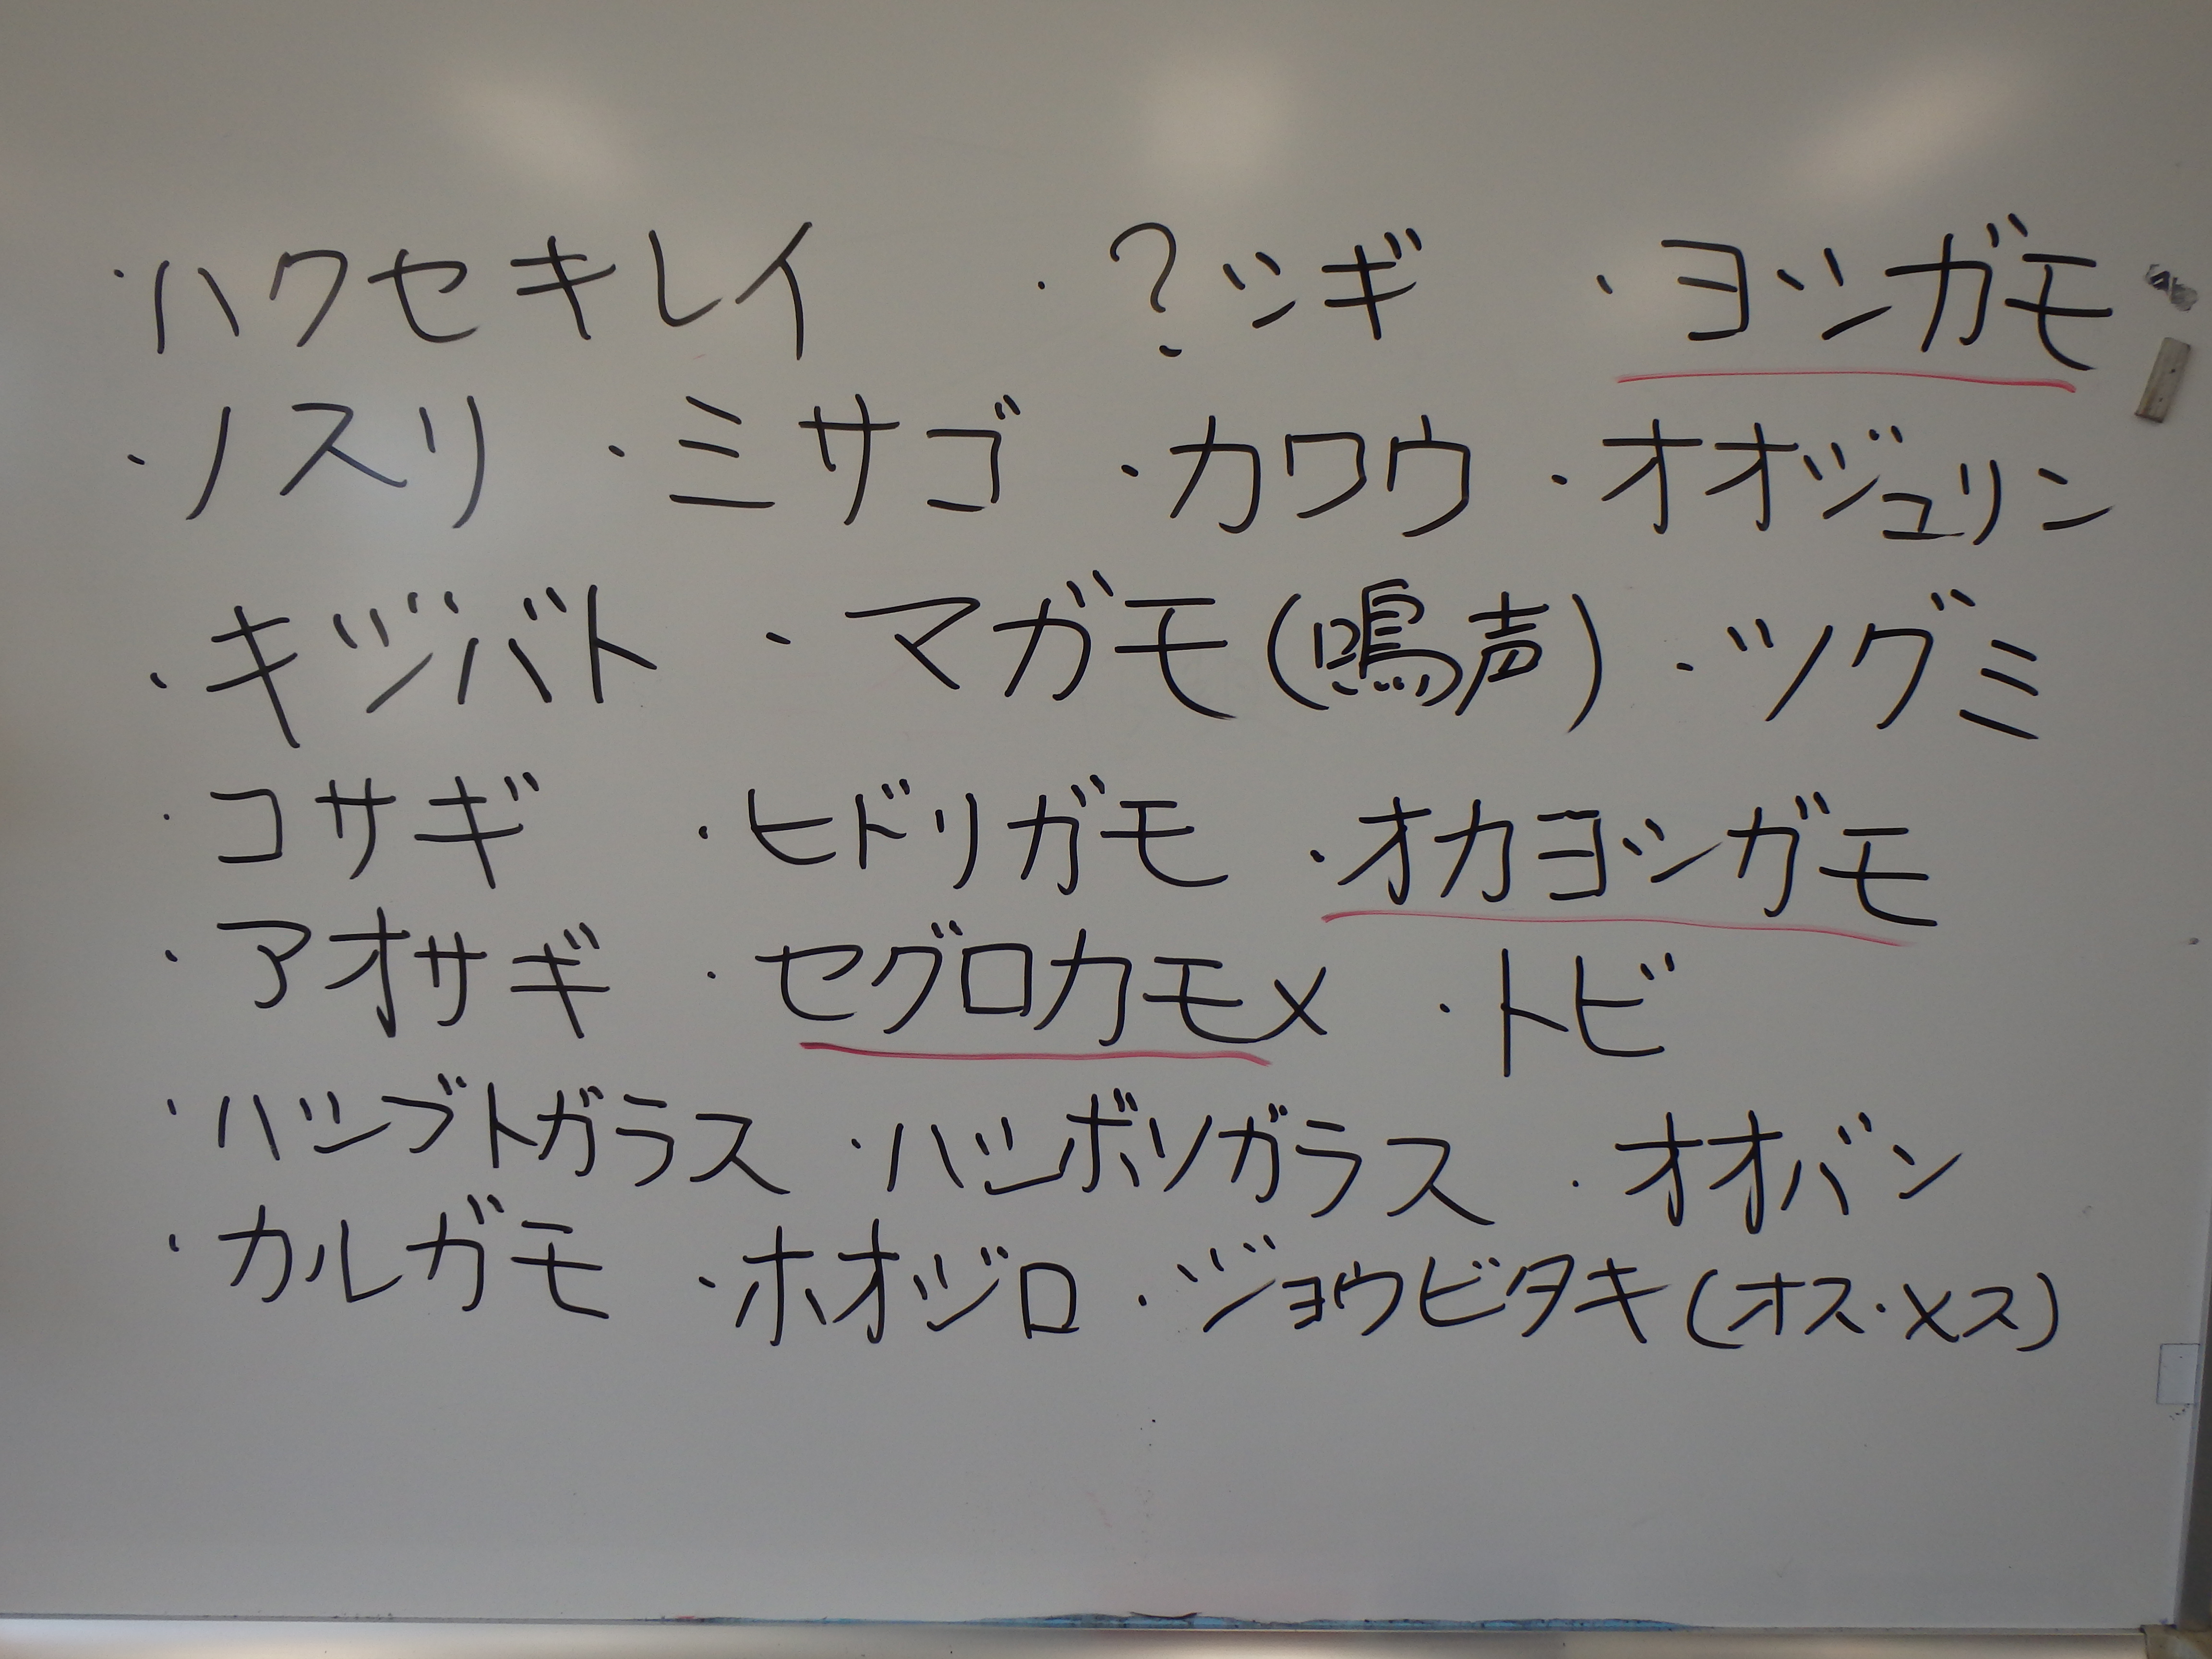 ・ハクセキレイ ・?シギ ・ヨシガモ
・ノスリ ・ミサゴ ・カワウ ・オオジュリン
・キジバト ・マガモ(鳴声) ・ツグミ
・コサギ ・ヒドリガモ ・オカヨシガモ
・アオサギ ・セグロカモメ ・トビ
・ハシブトガラス ・ハシボソガラス ・オオバン
・カルガモ ・ホオジロ ・ジョウビタキ(オス・メス)